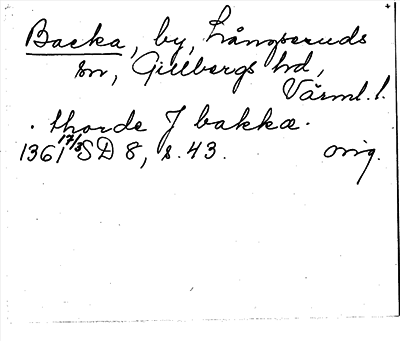 Backa, by, Långseruds
sn, Gillbergs hd,
Värml. l.
. thorde J bakka.
1361 17/3 SD 8, s. 43. orig.